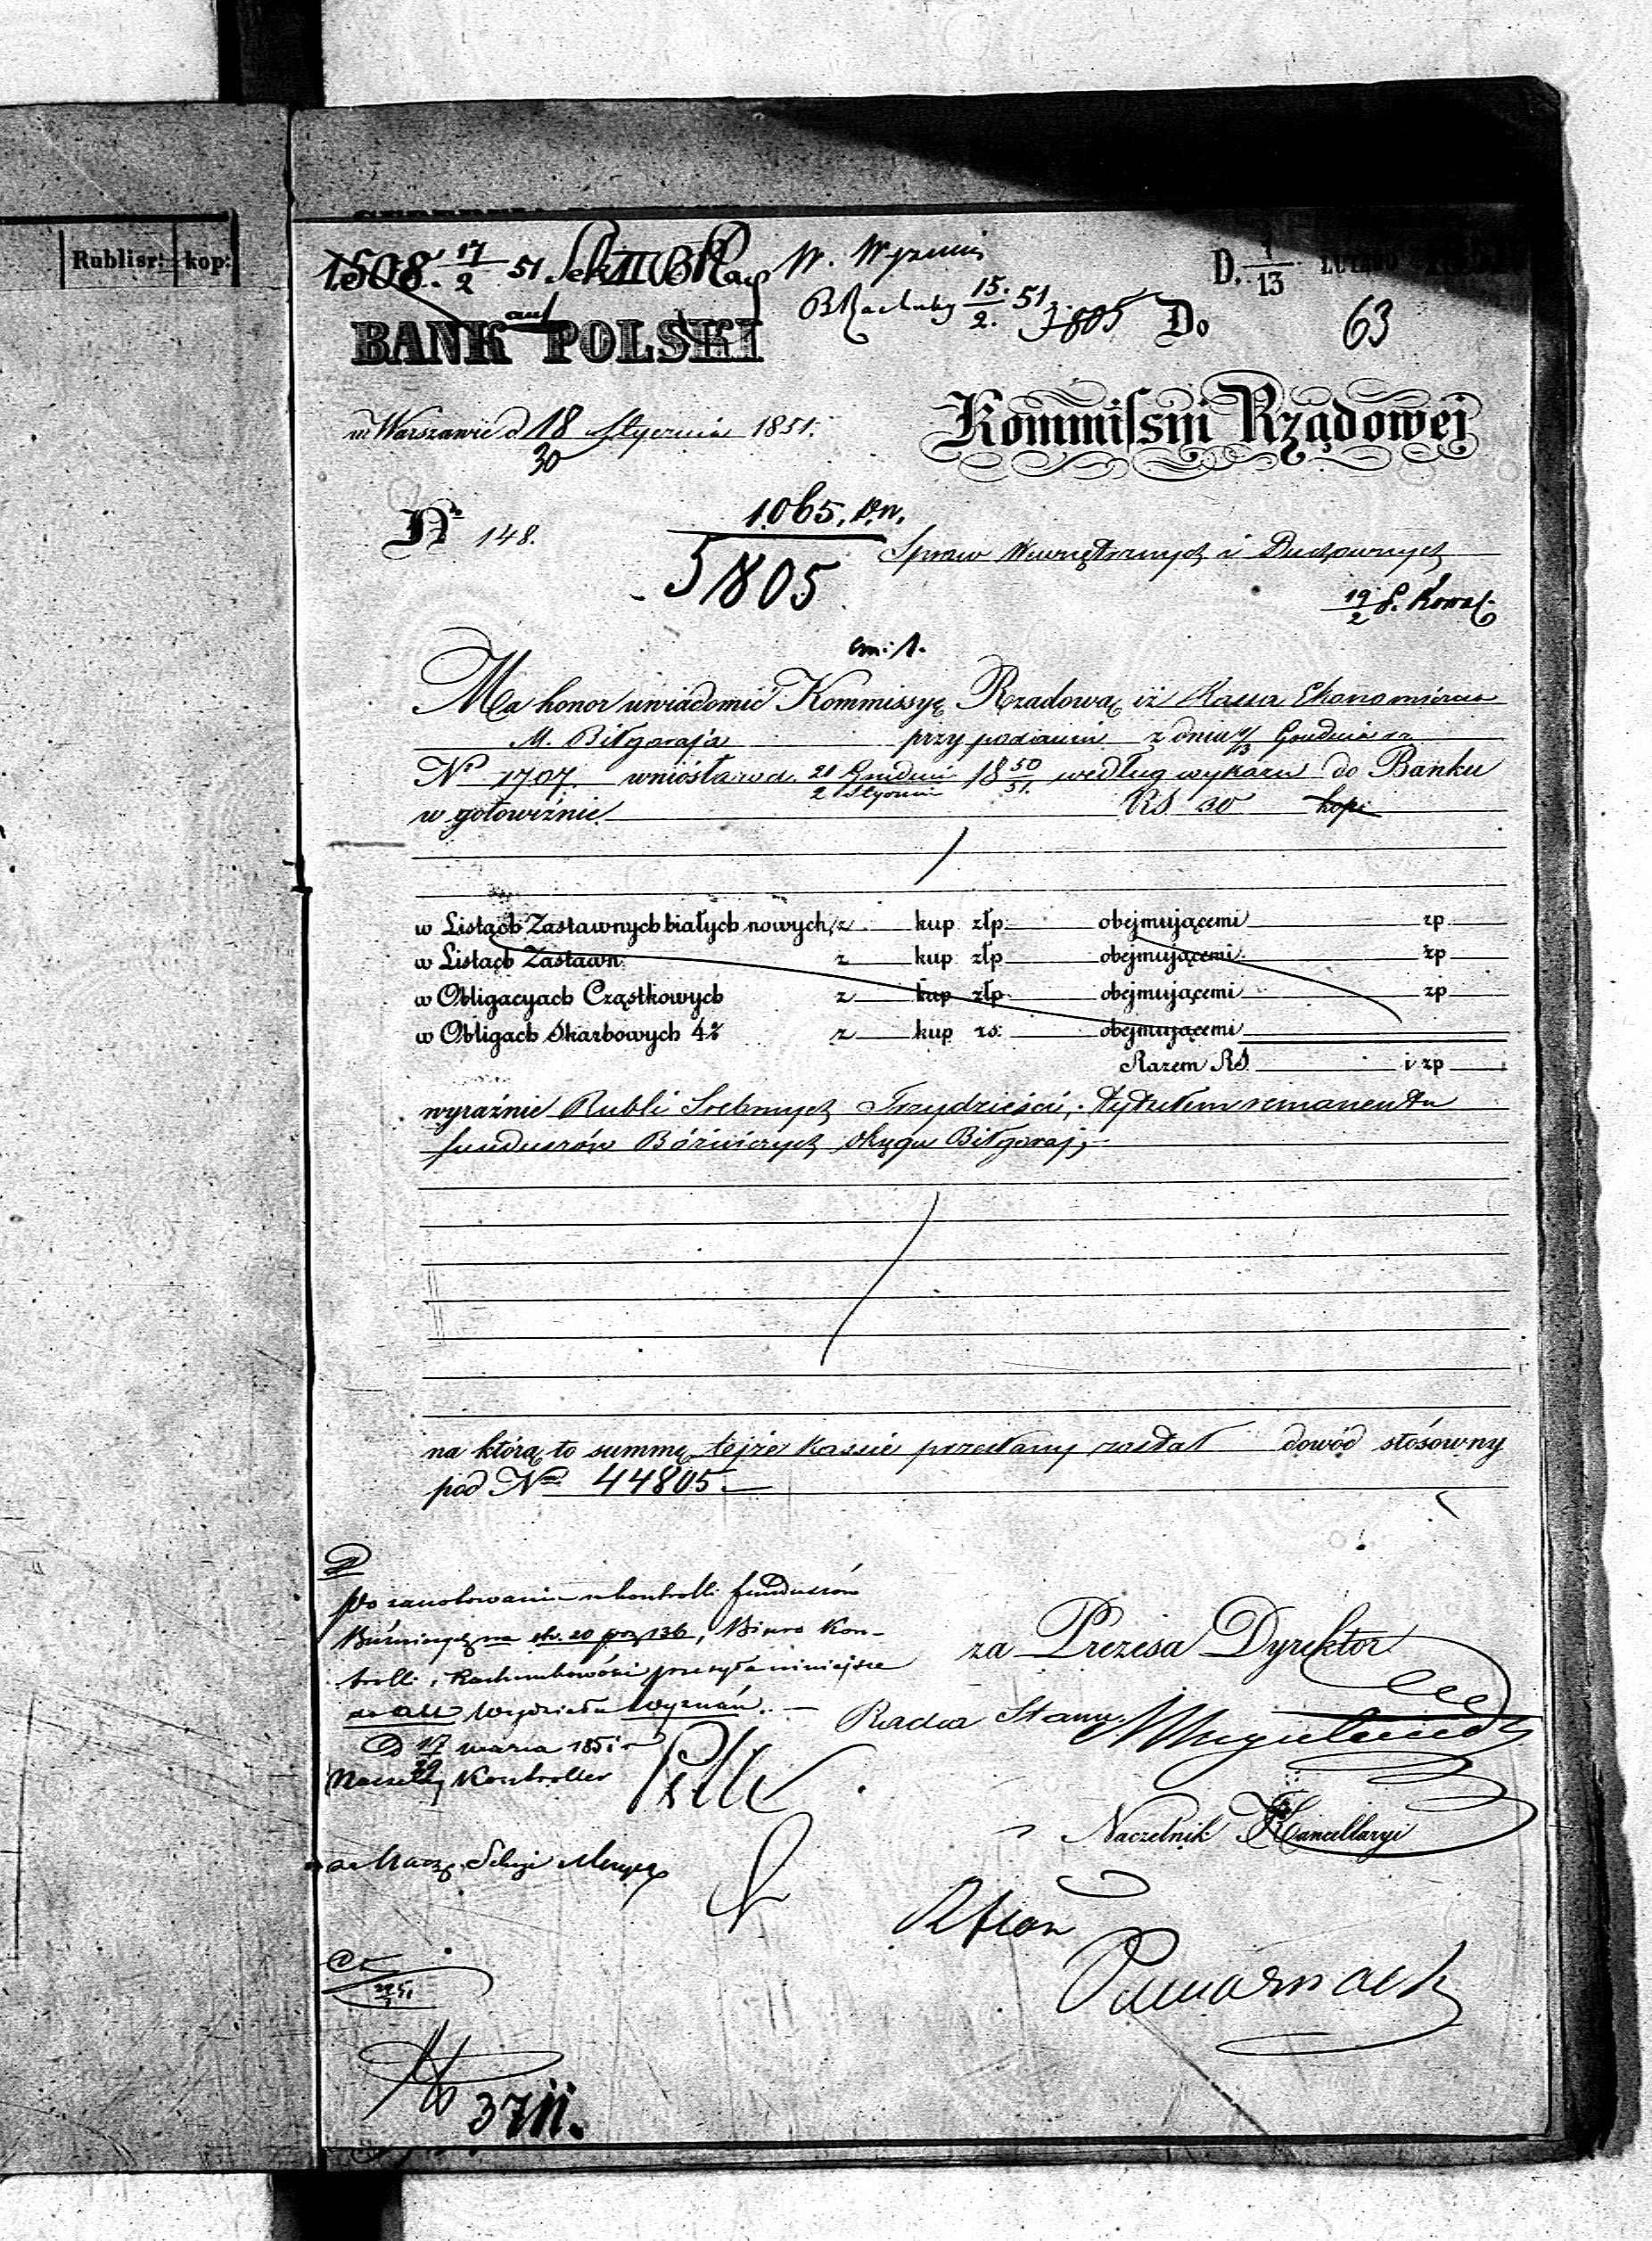 Rublisr: kop:
1508. 17/2 51 Sek III B
W. Wyznań
D. 1/13 LUTEGO 1851
B Rachuby 15/2. 51
3805
Do
63
BANK POLSKI
Kommissyi Rządowej
w Warszawie d 18/30 Stycznia 1851.
Nr 148.
1065.
5805
Spraw Wewnętrznych i Duchownych
19/2
Ma honor uwiadomić Kommissyę Rządową iż Kassa Ekonomiczna
M. Biłgoraja przy podaniu z dnia 1/13 Grudnia
No 1707. wniosła w d. 21 Grudnia/2 Stycznia 18 50/51 według wykazu do Banku
w gotowiźnie RS 30 kop:
w Listach Zastawnych białych nowych z kup złp: obejmującemi zp
w Listach Zastawn: z kup złp obejmującemi zp
w Obligacyach Cząstkowych z kup złp obejmującemi zp
w Obligach Skarbowych 4% z kup rs: obejmującemi
Razem RS. i zp
wyraźnie Rubli Srebrnych Trzydzieści, tytułem remanentu
funduszów Bóżniczych okręgu Biłgoraj,
na którą to summę tejże kassie przesłany został dowód stósowny
pod No 44805.
Po zanotowaniu w kontrolli funduszów
Bóżniczych na str. 20 poz 136, Biuro Kon-
trolli i Rachunkowości przesyła niniejsze
do akt Wydziału Wyznań.
D 17/29 marca 1851 r
Naczelny Kontroller
za Prezesa Dyrektor
Radca Stanu
Naczelnik Kancellaryi
3711.